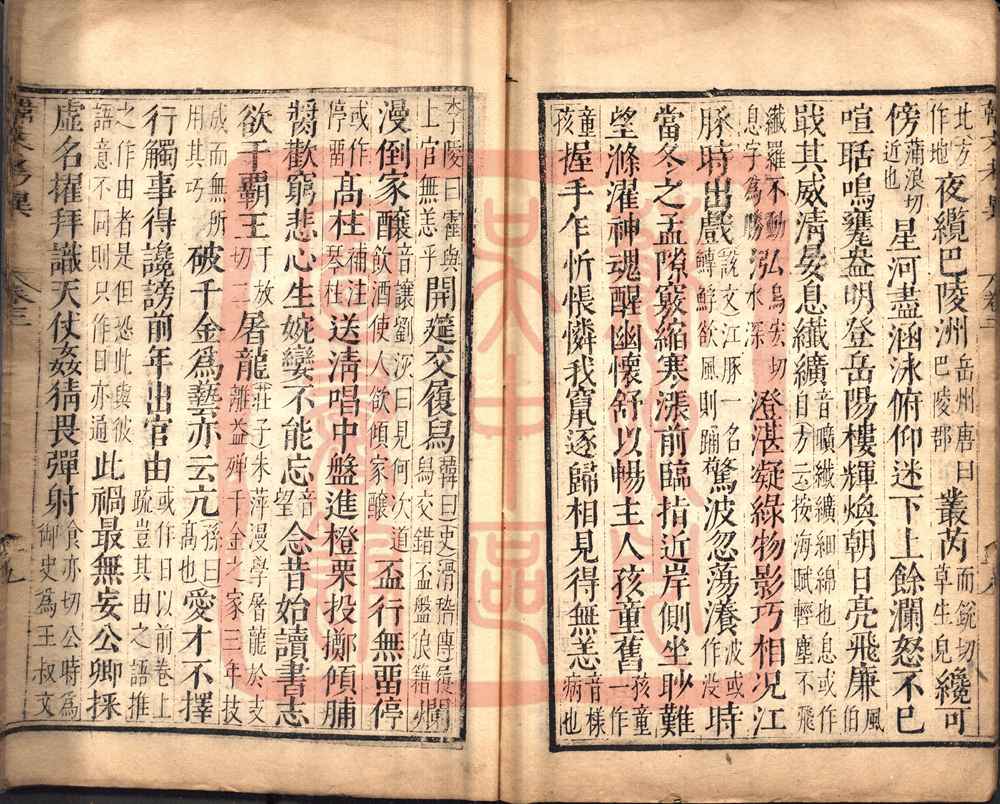 北方夜纜巴陵洲岳州唐曰巴陵郡叢芮而銳切草生見纔可
作地
傍蒲浪切近也星河盡涵泳俯仰迷下上餘瀾怒不已
喧聒鳴甕盎明登岳陽樓輝煥朝日亮飛廉風伯
戢其威清晏息纖纊音曠纖纊細綿也息或作自方云按海賦輕塵不飛
纖羅不動息字為勝泓烏宏切水深澄湛凝綠物影巧相況江
豚時出戲說文江豚一名鱄鮮欲風則踊驚波忽蕩瀁波或作沒時
當冬之孟隙竅縮寒漲前臨指近岸側坐眇難
望滌濯神魂醒幽懷舒以暢主人孩童舊一作孩童
童孩握手乍忻悵憐我竄逐歸相見得無恙音樣病也
李陵曰霍與上官無恙乎開筵交履舄韓曰史滑稽傳履舄交錯盃盤狼籍爛
漫倒家釀音讓劉惔曰見何次道飲酒使人欲傾家釀盃行無畱停
或作停畱高柱補注琴柱送清唱中盤進橙栗投擲傾脯
醬歡窮悲心生婉孌不能忘音望念昔始讀書志
欲干霸王于放切二屠龍莊子朱萍漫學屠龍於支離益殫千金之家三年技
成而無所用其巧破千金為藝亦云亢孫曰高也愛才不擇
行觸事得讒謗前年出官由或作日以前卷上疏豈其由之語推
之作由者是但恐此與彼語意不同則只作日亦通此禍最無妄公卿採
虛名擢拜識天仗姦猜畏彈射食亦切公時為御史為王叔文